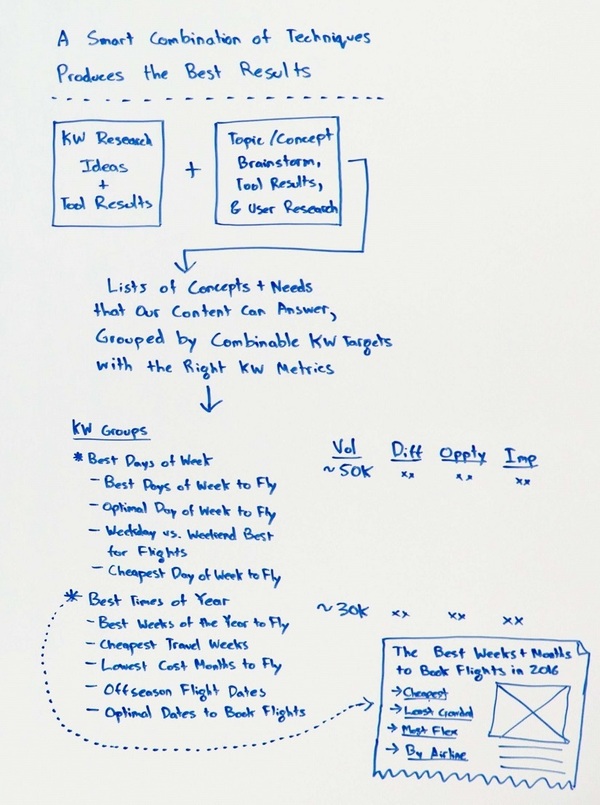 A Smart Combination of Techniques
Produces the Best Results
KW Research
Ideas
+
Tool Results
+
Topic/Concept
Brainstorm,
Tool Results,
& User Research
Lists of Concepts + Needs
that Our Content Can Answer,
Grouped by Combinable KW Targets
with the Right KW Metrics
KW Groups
Vol Diff Oppty Imp
* Best Days of Week
~50K xx xx xx
- Best Days of Week to Fly
- Optimal Day of Week to Fly
- Weekday vs. Weekend Best
for Flights
- Cheapest Day of Week to Fly
* Best Times of Year
~30K xx xx xx
- Best Weeks of the Year to Fly
- Cheapest Travel Weeks
- Lowest Cost Months to Fly
- Offseason Flight Dates
- Optimal Dates to Book Flights
The Best Weeks + Months
to Book Flights in 2016
→ Cheapest
→ Least Crowded
→ Most Flex
→ By Airline